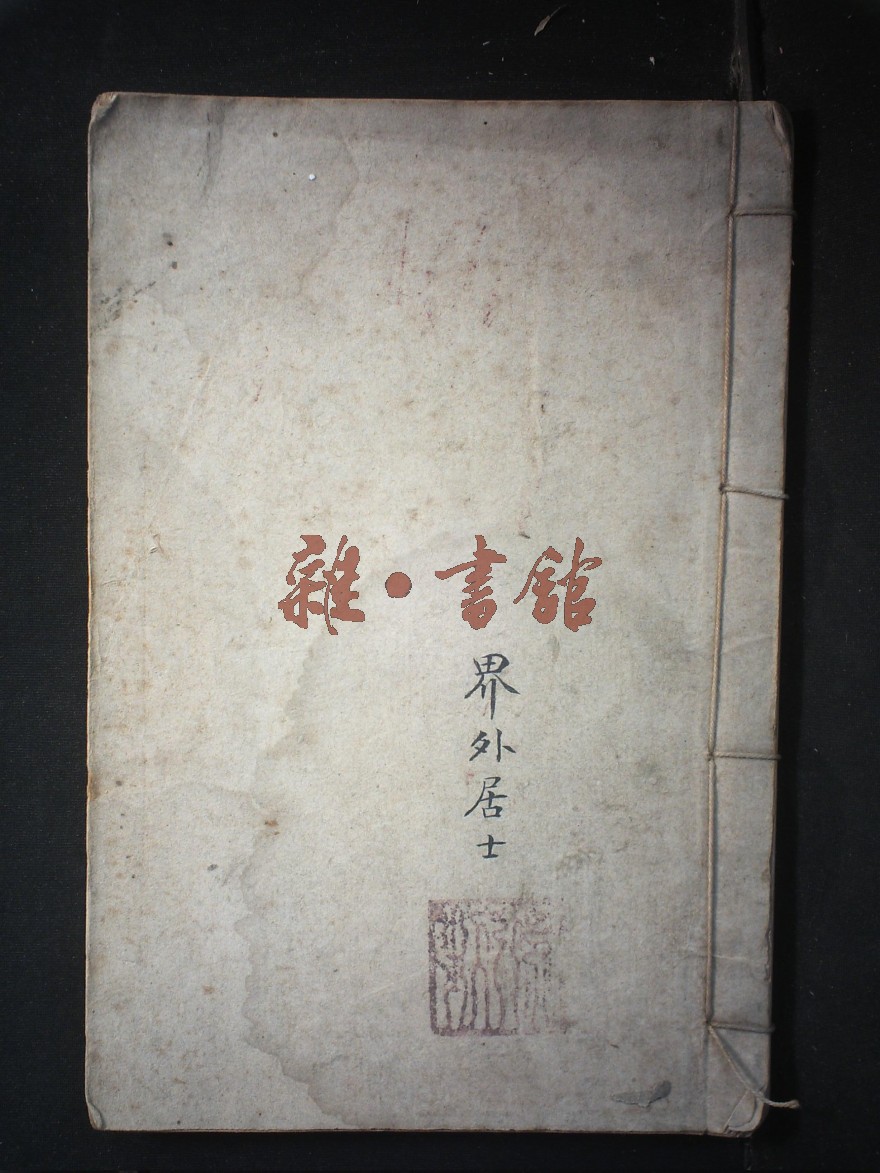 雜·書館
界外居士